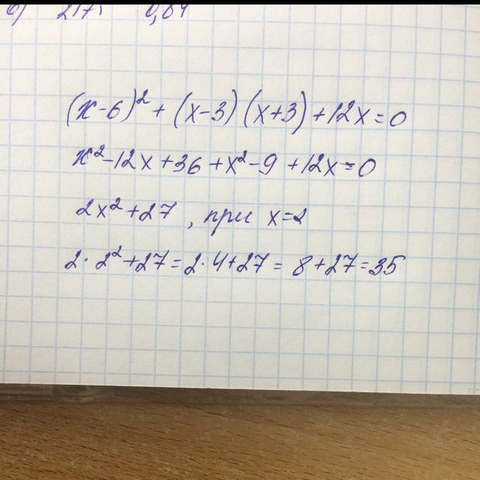 (x-6)² + (x-3)(x+3) + 12x = 0
x² - 12x + 36 + x² - 9 + 12x = 0
2x² + 27, при x = 2
2 · 2² + 27 = 2 · 4 + 27 = 8 + 27 = 35